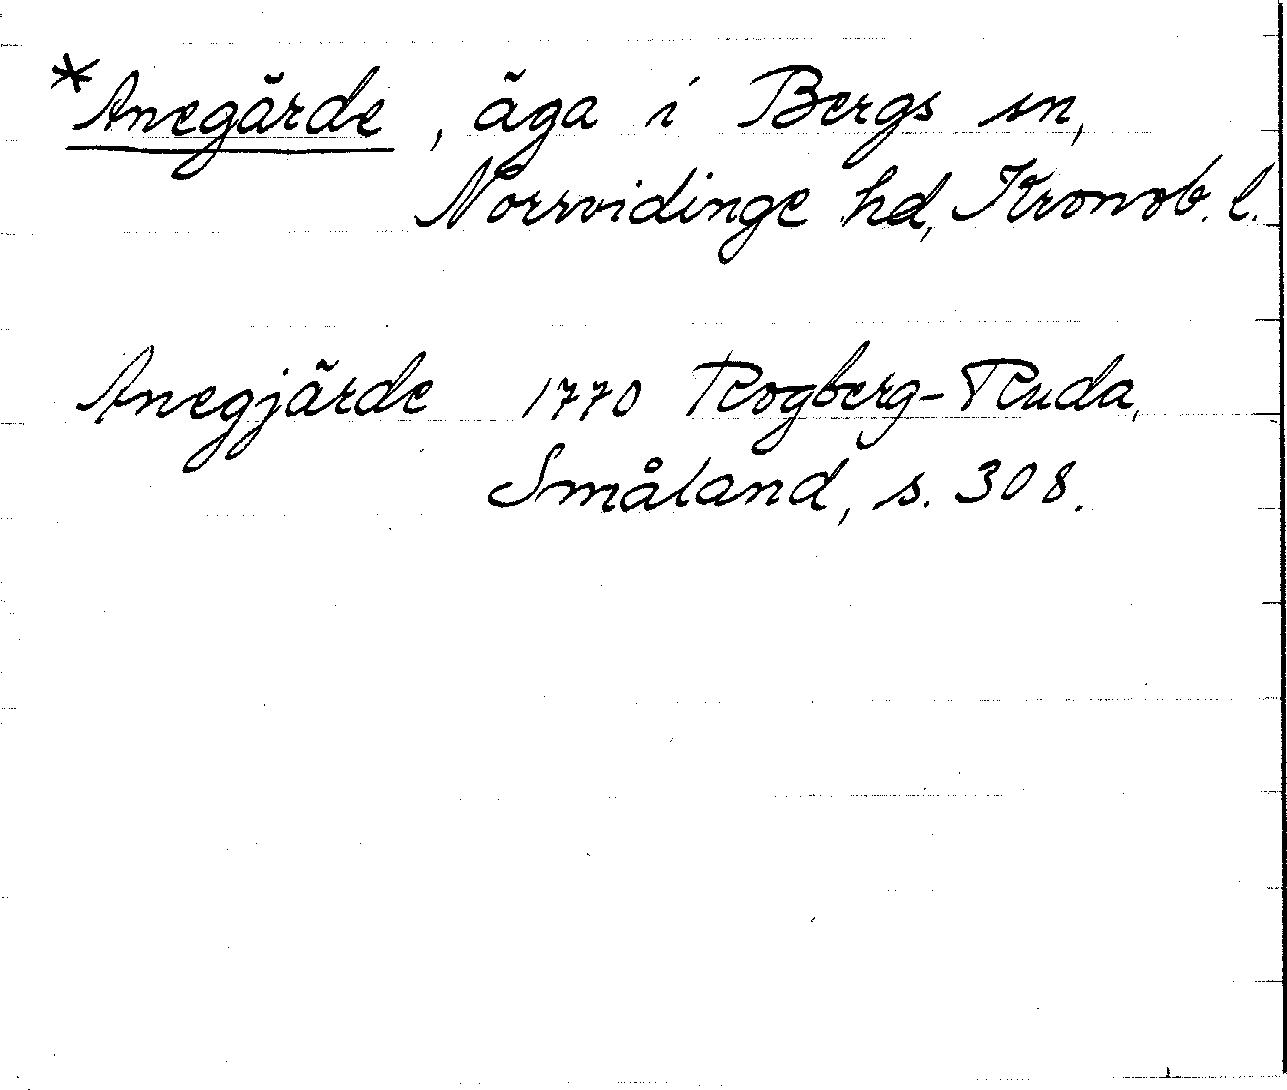 *Anegärde, äga i Bergs sn,
Norrvidinge hd, Kronob. l.
Anegjärde 1770 Rogberg-Ruda,
Småland, s. 308.